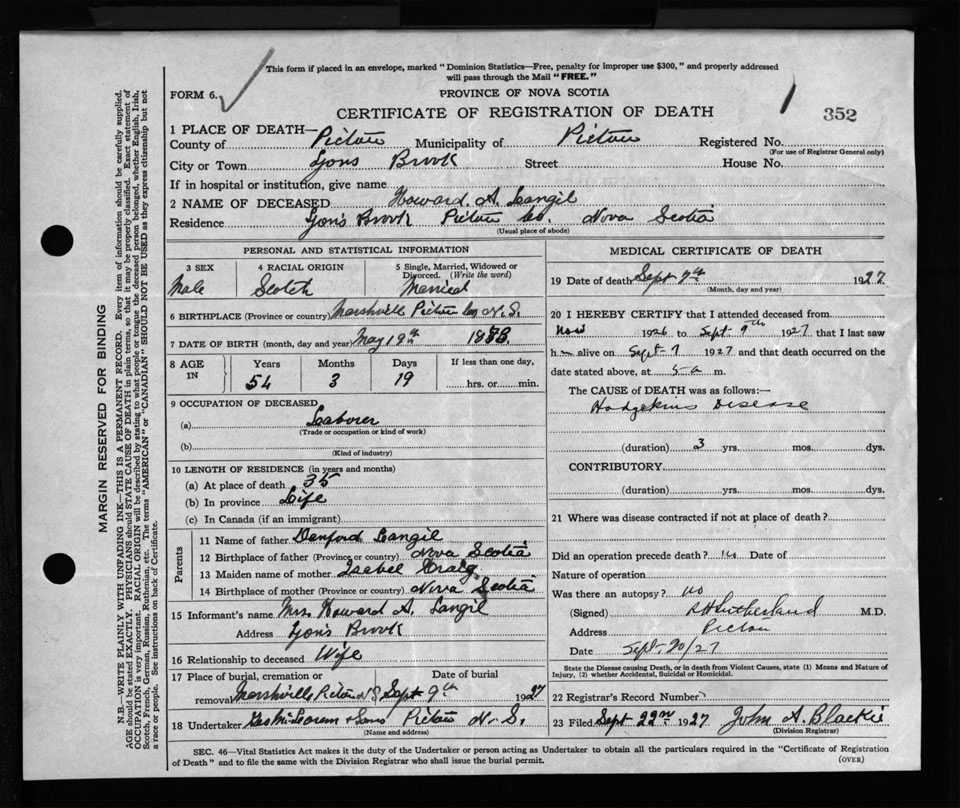 This form if placed in an envelope, marked "Dominion Statistics—Free, penalty for improper use $300," and properly addressed
will pass through the Mail "FREE."
FORM 6.
PROVINCE OF NOVA SCOTIA
CERTIFICATE OF REGISTRATION OF DEATH
352
1 PLACE OF DEATH—
County of Pictou Municipality of Pictou Registered No.
(For use of Registrar General only)
City or Town Lyons Brook Street House No.
If in hospital or institution, give name
2 NAME OF DECEASED Howard. A. Langil
Residence Lyon's Brook Pictou Co. Nova Scotia
(Usual place of abode)
PERSONAL AND STATISTICAL INFORMATION
3 SEX 4 RACIAL ORIGIN 5 Single, Married, Widowed or Divorced. (Write the word)
Male Scotch Married
6 BIRTHPLACE (Province or country) Marshville Pictou Co N.S.
7 DATE OF BIRTH (month, day and year) May 19th
8 AGE IN Years Months Days If less than one day,
54 3 19 hrs. or min.
9 OCCUPATION OF DECEASED
(a) Laborer
(Trade or occupation or kind of work)
(b)
(Kind of industry)
10 LENGTH OF RESIDENCE (in years and months)
(a) At place of death 35
(b) In province Life
(c) In Canada (if an immigrant)
Parents
11 Name of father Danford Langil
12 Birthplace of father (Province or country) Nova Scotia
13 Maiden name of mother Isabel Craig
14 Birthplace of mother (Province or country) Nova Scotia
15 Informant's name Mrs. Howard A. Langil
Address Lyon's Brook
16 Relationship to deceased Wife
17 Place of burial, cremation or Date of burial
removal Marshville Pictou N S Sept 9th 1927
18 Undertaker & Sons Pictou N.S.
(Name and address)
MEDICAL CERTIFICATE OF DEATH
19 Date of death Sept 7th 1927
(Month, day and year)
20 I HEREBY CERTIFY that I attended deceased from
Nov 1926 to Sept 7th 1927 that I last saw
h alive on Sept 7 1927 and that death occurred on the
date stated above, at 5 a m.
The CAUSE OF DEATH was as follows:—
Hodgskins Disease
(duration) 3 yrs. mos. dys.
CONTRIBUTORY
(duration) yrs. mos. dys.
21 Where was disease contracted if not at place of death?
Did an operation precede death? Date of
Nature of operation
Was there an autopsy? no
(Signed) R H Sutherland M.D.
Address Pictou
Date Sept 20/27
State the Disease causing Death, or in death from Violent Causes, state (1) Means and Nature of
Injury, (2) whether Accidental, Suicidal or Homicidal.
22 Registrar's Record Number
23 Filed Sept 22nd 1927 John A. Blackie
(Division Registrar)
SEC. 46—Vital Statistics Act makes it the duty of the Undertaker or person acting as Undertaker to obtain all the particulars required in the "Certificate of Registration
of Death" and to file the same with the Division Registrar who shall issue the burial permit.
(OVER)
MARGIN RESERVED FOR BINDING
N.B.—WRITE PLAINLY WITH UNFADING INK—THIS IS A PERMANENT RECORD. Every item of information should be carefully supplied.
AGE should be stated EXACTLY. PHYSICIANS should STATE CAUSE OF DEATH in plain terms, so that it may be properly classified. Exact statement of
OCCUPATION is very important. RACIAL ORIGIN will be described by stating to what people or tongue the deceased person belonged, whether English, Irish,
Scotch, French, German, Russian, Ruthenian, etc. The terms "AMERICAN" or "CANADIAN" SHOULD NOT BE USED as they express citizenship but not
a race or people. See instructions on back of Certificate.